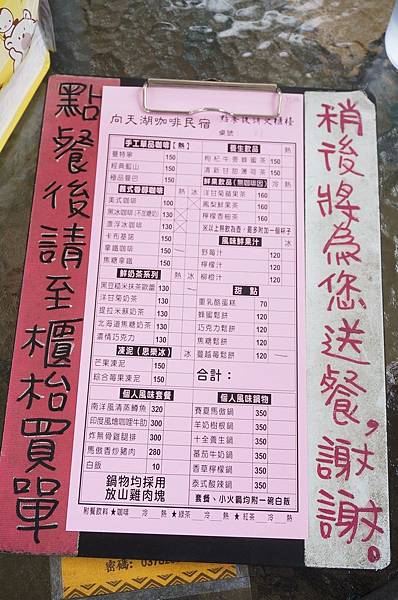 點餐後請至櫃枱買單
向天湖咖啡民宿
點餐後請交櫃檯
桌號
手工單品咖啡【熱】
曼特寧 150
經典藍山 150
極品曼巴 150
義式香醇咖啡 熱 冰
美式咖啡 100
黑冰咖啡(不加糖奶) 130
漂浮冰咖啡 130
卡布基諾 150
拿鐵咖啡 150
焦糖拿鐵 150
鮮奶茶系列 熱 冰
黑豆糙米抹茶歐蕾 130
洋甘菊奶茶 130
提拉米穌奶茶 130
北海道焦糖奶茶 130
濃情巧克力 130
凍泥（思樂冰）
芒果凍泥 150
綜合莓果凍泥 150
養生飲品 熱
枸杞牛蒡蜂蜜茶 150
清新甘甜薄荷茶 150
鮮果飲品(無咖啡因) 冷 熱
洋甘菊蘋果茶 160
鳳梨鮮果茶 160
檸檬香柚茶 160
※以上無飲為壺，最多附加一個杯子
風味鮮果汁 冰
野莓汁 120
檸檬汁 120
柳橙汁 120
甜點
重乳酪蛋糕 70
蜂蜜鬆餅 120
巧克力鬆餅 120
焦糖鬆餅 120
蔓越莓鬆餅 130
合計：
個人風味套餐
南洋風清蒸鱈魚 320
印度風燴咖哩牛肋 300
炸無骨雞腿排 300
馬傲香炒豬肉 280
白飯 10
鍋物均採用
放山雞肉塊
個人風味鍋物
賽夏馬傲鍋 350
羊奶樹根鍋 350
十全養生鍋 350
番茄牛奶鍋 350
香草檸檬鍋 350
泰式酸辣鍋 350
套餐、小火鍋均附一碗白飯
附餐飲料 ★咖啡 冷 熱 ★綠茶 冷 熱 ★紅茶 冷 熱
稍後將為您送餐,謝謝。